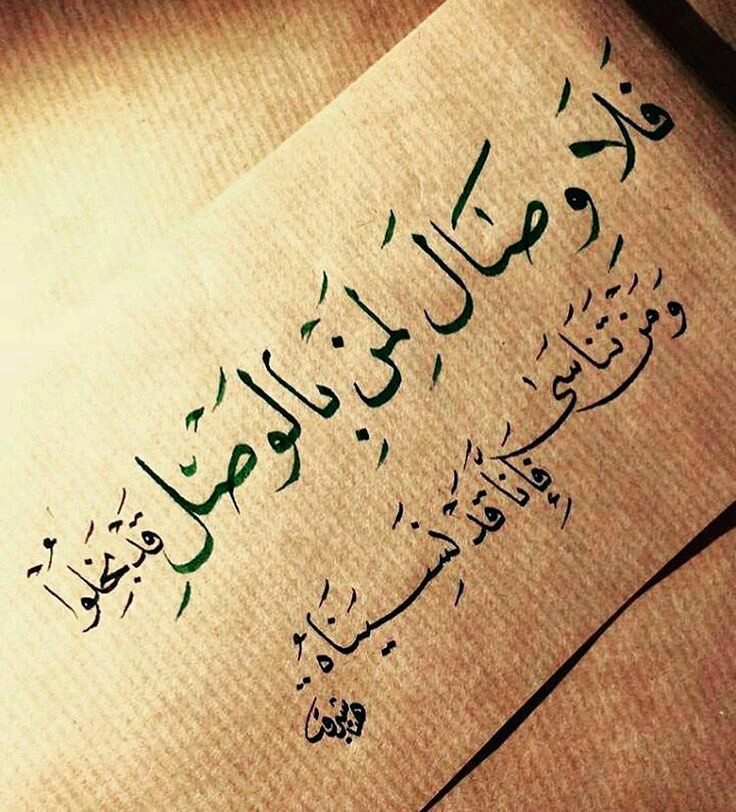 فَلَا وِصَالَ لِمَنْ بِالوَصْلِ قَدْ بَخِلُواْ
وَمَنْ تَنَاسَىٰ فَإِنَّا قَدْ نَسِينَاهُ